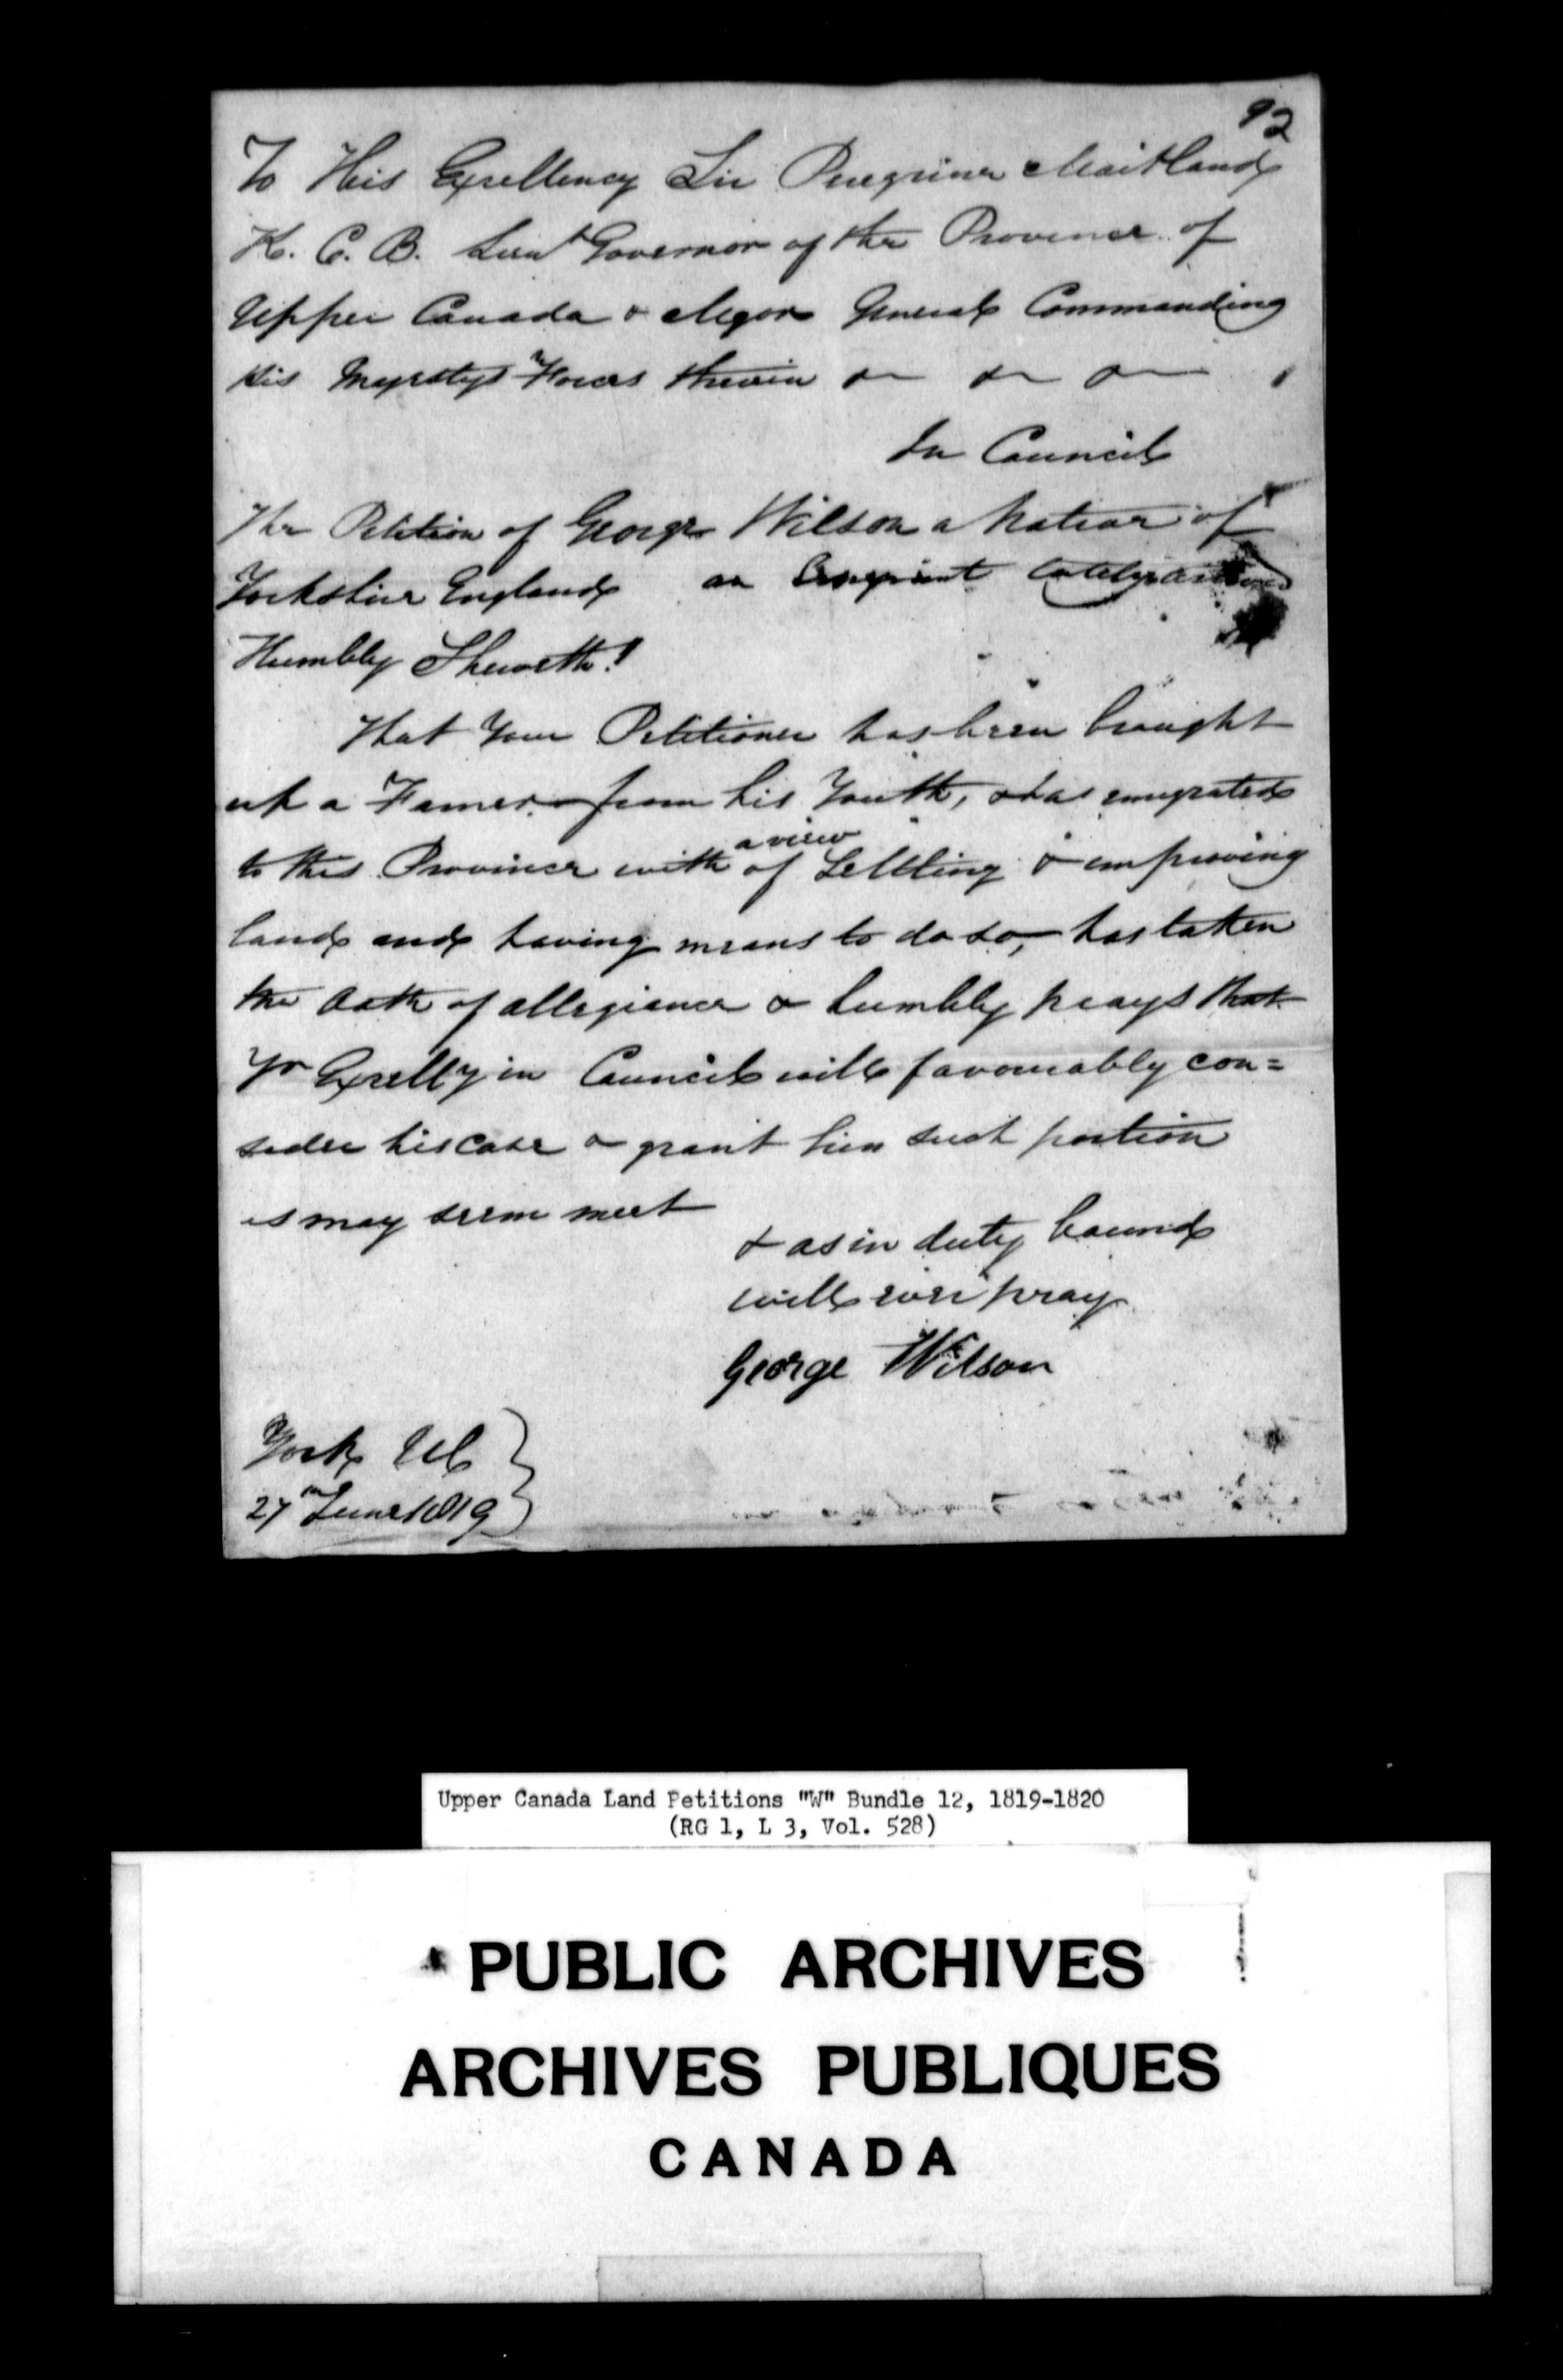 92
To His Excellency Sir Peregrine Maitland
K. C. B. Lieut Governor of the Province of
Upper Canada & Major General Commanding
His Majestys Forces therein &c &c &c
In Council
The Petition of George Wilson a Native of
Yorkshire England an Emigrant lately arrived
Humbly Sheweth!
That Your Petitioner has been brought
up a Farmer from his Youth, & has emigrated
to this Province with a view of Settling & improving
land and having means to do so, has taken
the Oath of allegiance & humbly prays that
Yr Excelly in Council will favourably con=
sider his case & grant him such portion
as may seem meet
& as in duty bound
will ever pray
George Wilson
York UC
27th June 1819
Upper Canada Land Petitions "W" Bundle 12, 1819-1820
(RG 1, L 3, Vol. 528)
PUBLIC ARCHIVES
ARCHIVES PUBLIQUES
CANADA